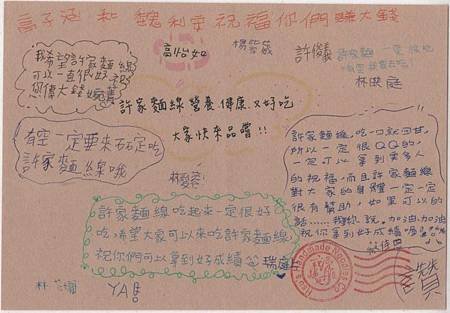 高子涵 和 魏利安 祝福你們賺大錢
我希望許家麵線
可以一直很好
您偉大錢
高伯如
許儀
許家麵 一定很吃
林映庭
許家麵線營養健康又好吃
大家快來品嘗!!
有空一定要來石定吃
許家麵線哦
許家麵線,吃一口就回甘,
所以一定很QQ的,
一定可以拿到更多人
的祝福,而且許家麵線
對大家的身體一定一定
很有幫助,如果可以的
話……我想說,加油,加油
祝你拿到好成績
許家麵線吃起來一定很好
吃,希望大家可以來吃許家麵線,
祝你們可以拿到好成績
瑞庭
YA!
讚
Hsu's Handmade Noodles Co.